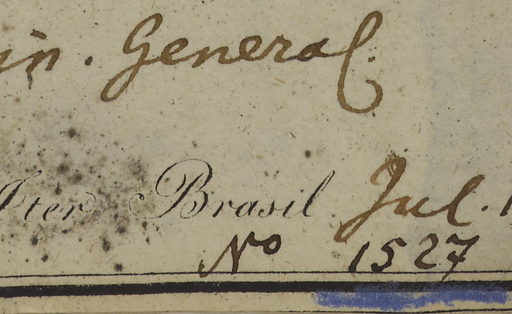 in. General.
Iter Brasil. Jul.
No 1527